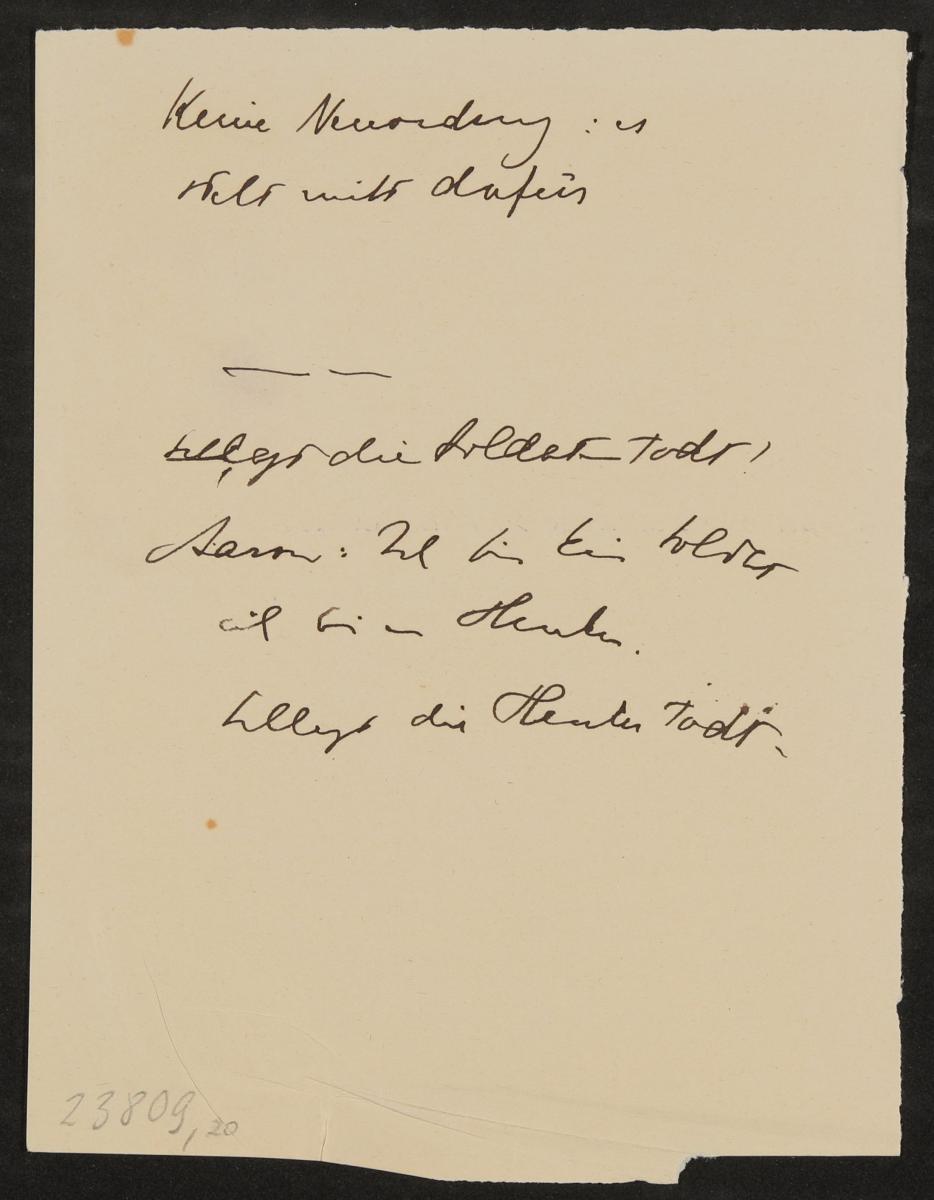 Keine Neuordnung : es
steht nicht dafür
— —
schlagt die Soldaten todt!
Aaron: Ich bin kein Soldat
ich bin ein Henker.
schlagt die Henker todt.
23809,20